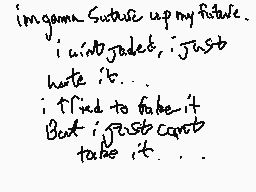 im gonna suture up my future.
i aint jaded, i just
hate it...
i tried to fake it
But i just cant
take it....